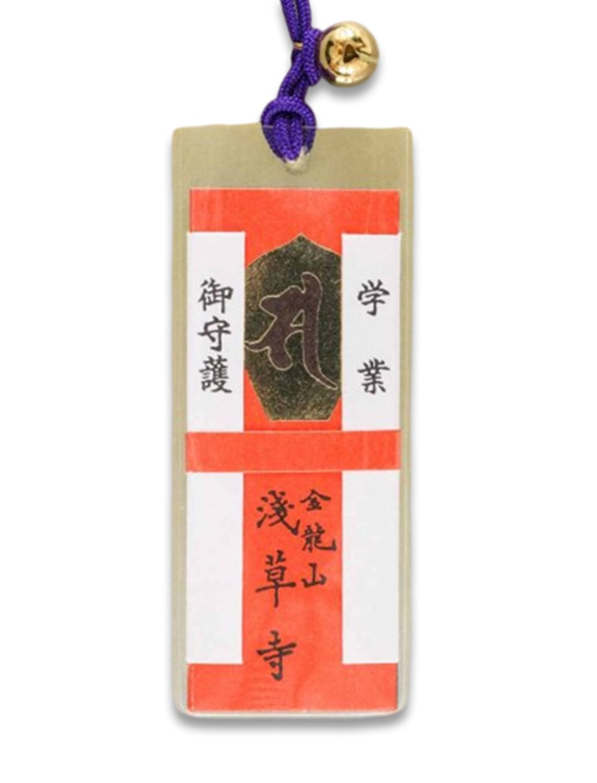 学業
御守護
𑖭
金龍山
淺草寺